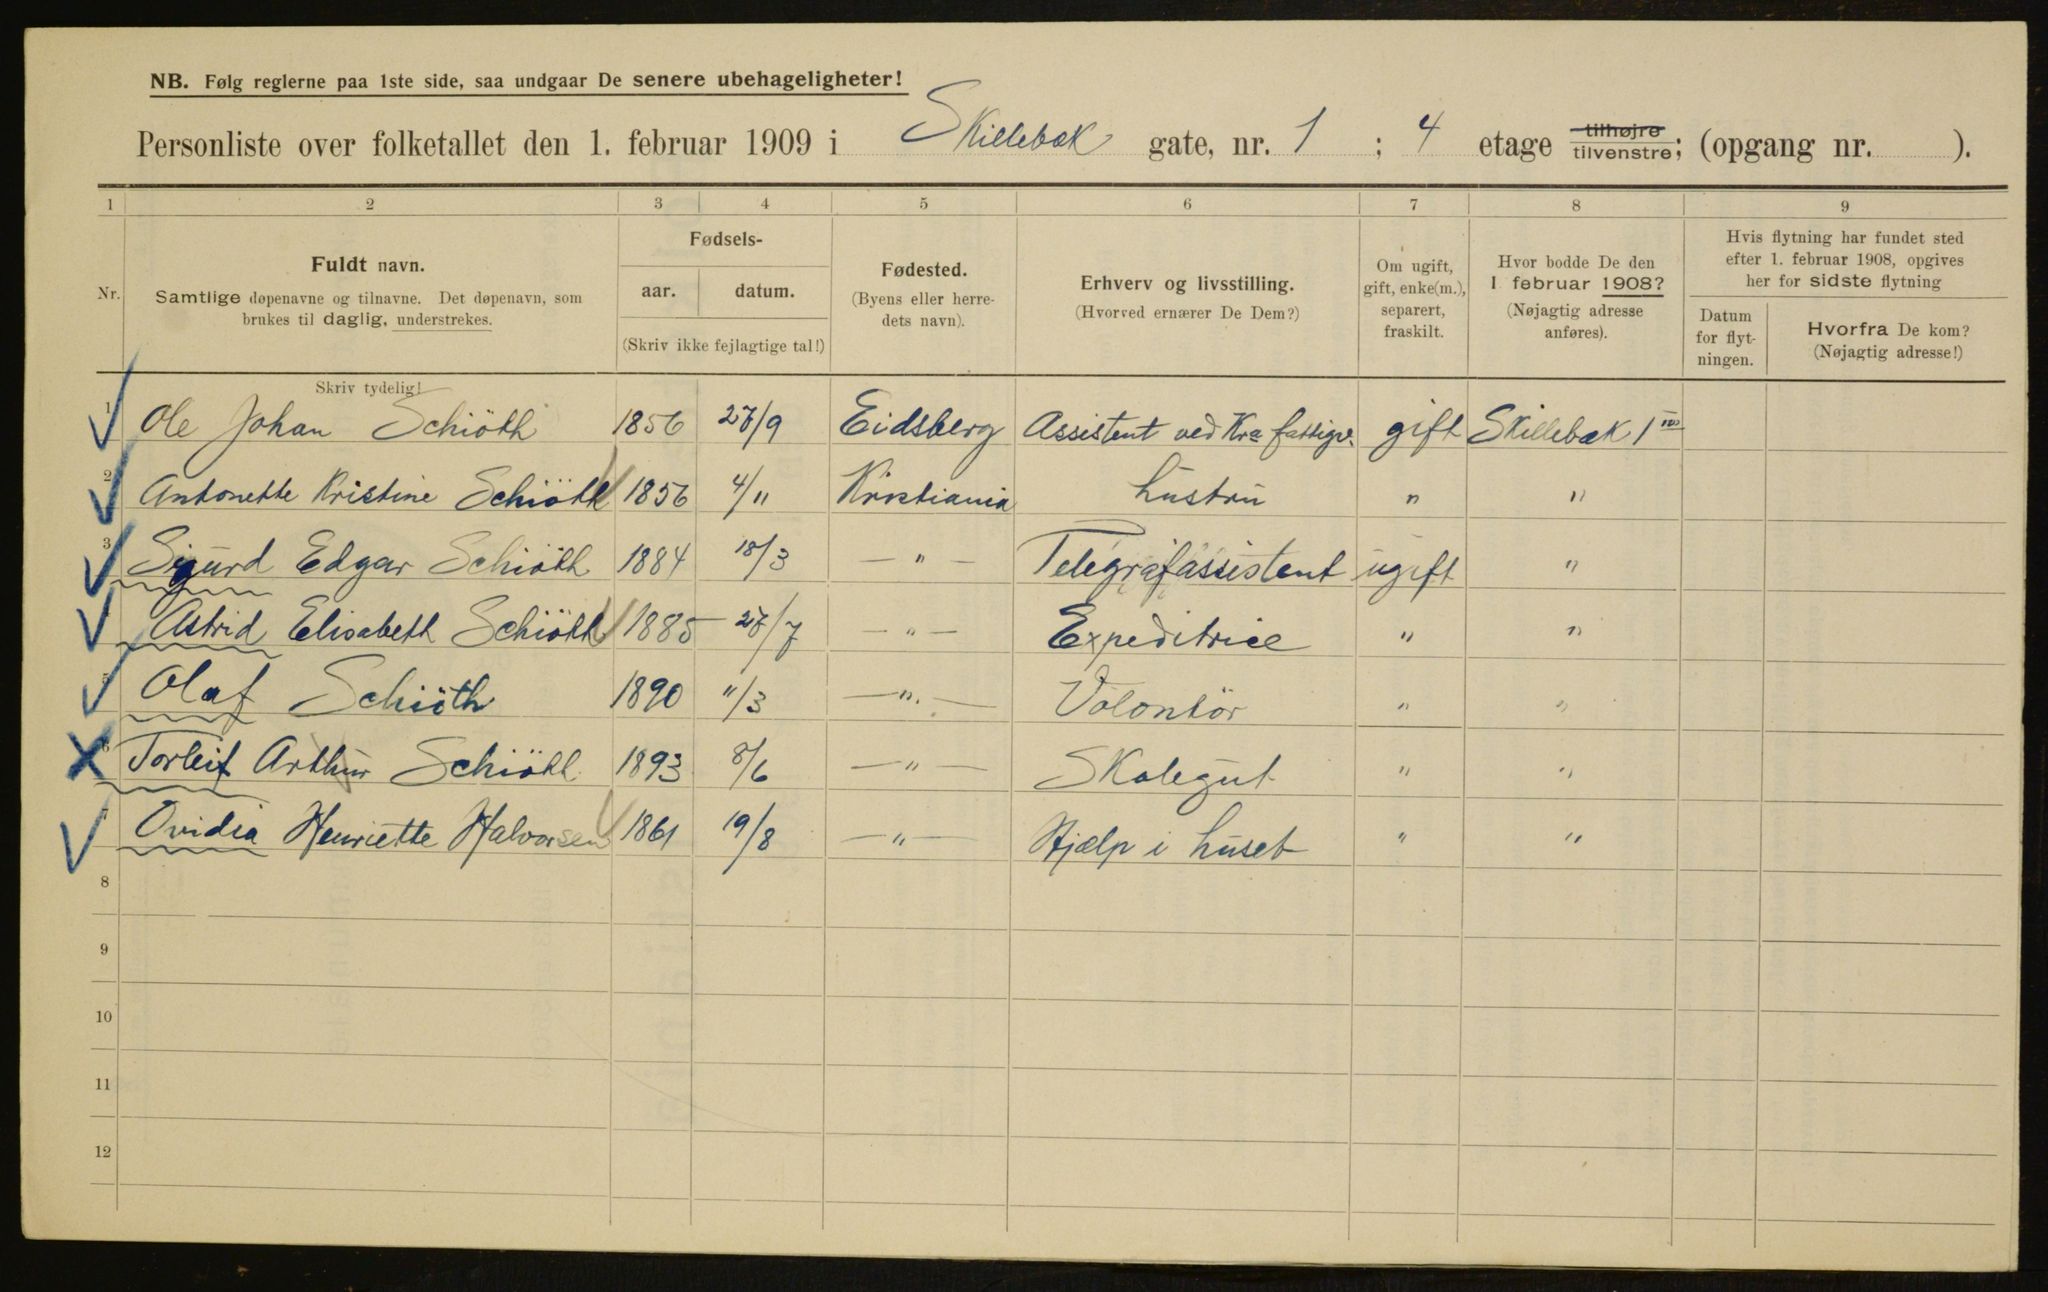 NB. Følg reglerne paa 1ste side, saa undgaar De senere ubehageligheter!
Personliste over folketallet den 1. februar 1909 i Skillebæk gate, nr. 1 ; 4 etage tilhøjre tilvenstre; (opgang nr. ).
1 2 3 4 5 6 7 8 9
Nr.
Fuldt navn.
Samtlige døpenavne og tilnavne. Det døpenavn, som
brukes til daglig, understrekes.
Skriv tydelig!
Fødsels-
aar. datum.
(Skriv ikke fejlagtige tal!)
Fødested.
(Byens eller herre-
dets navn).
Erhverv og livsstilling.
(Hvorved ernærer De Dem?)
Om ugift,
gift, enke(m.),
separert,
fraskilt.
Hvor bodde De den
1 februar 1908?
(Nøjagtig adresse
anføres).
Hvis flytning har fundet sted
efter 1. februar 1908, opgives
her for sidste flytning
Datum
for flyt-
ningen.
Hvorfra De kom?
(Nøjagtig adresse!)
1 Ole Johan Schiöth 1856 27/9 Eidsberg Assistent ved Kra fattigv. gift Skillebæk 1
2 Antonette Kristine Schiöth 1856 4/11 Kristiania hustru " "
3 Sigurd Edgar Schiöth 1884 18/3 — " — Telegrafassistent ugift "
Astrid Elisabeth Schiöth 1885 27/7 — " — Expeditrice " "
5 Olaf Schiöth 1890 11/3 — " — Volontör " "
6 Torleif Arthur Schiöth 1893 8/6 — " — Skolegut " "
7 Ovidia Henriette Halvorsen 1861 19/8 — " — Hjælp i huset " "
8
9
10
11
12